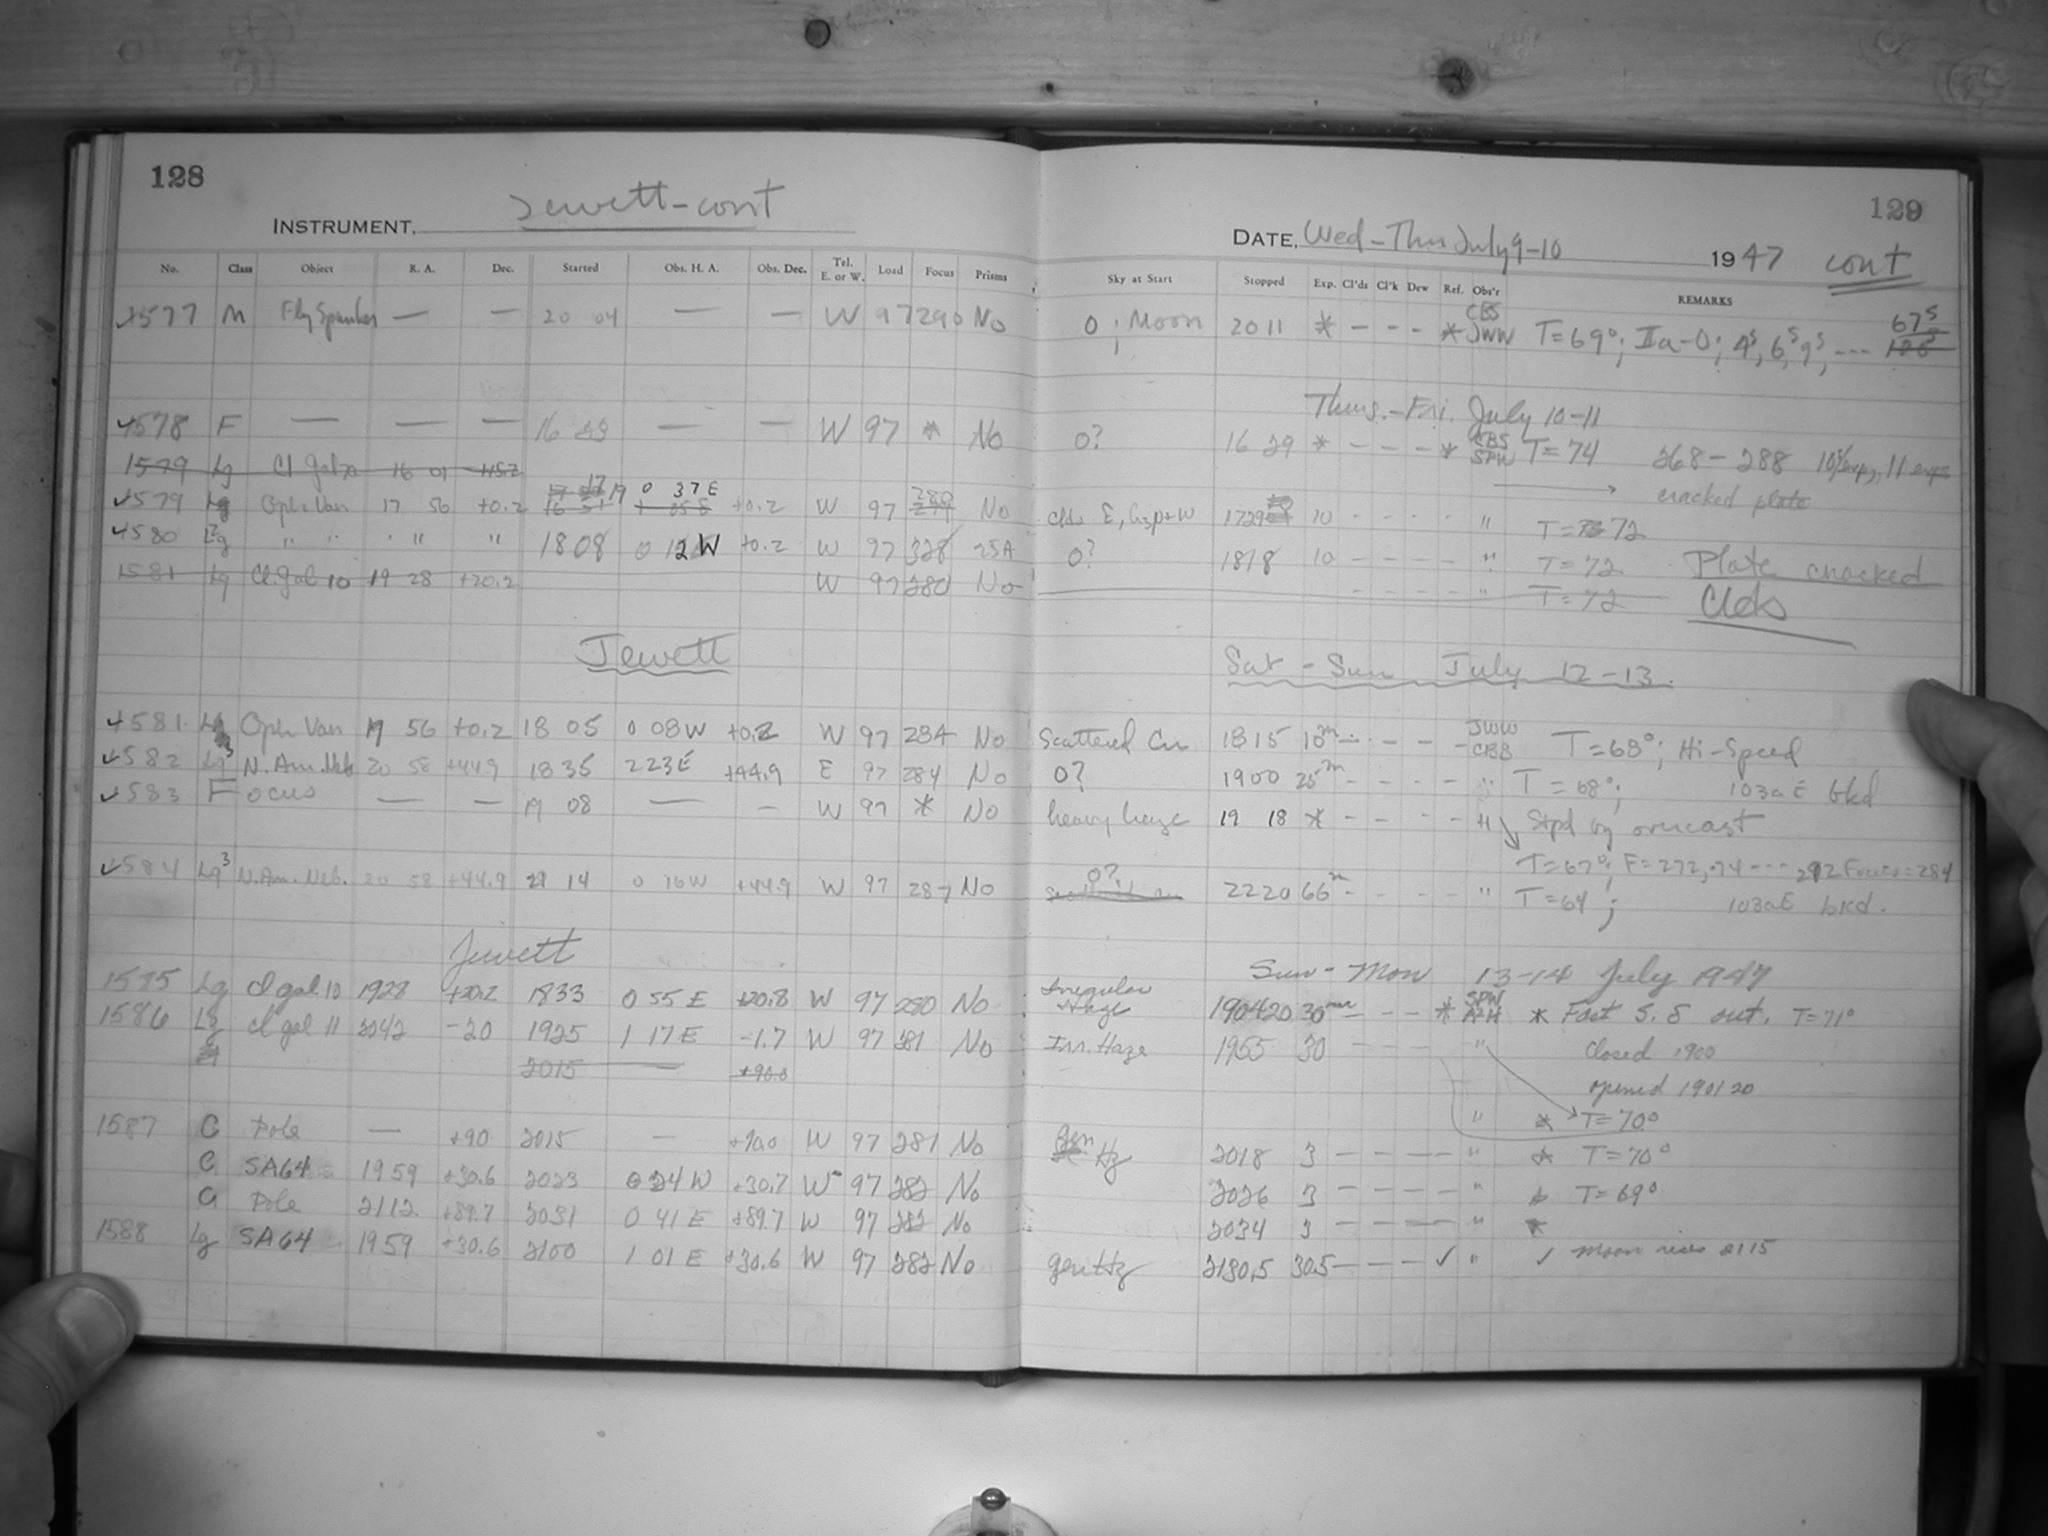 128
INSTRUMENT, Jewett-cont
No. Class Object R. A. Dec. Started Obs. H. A. Obs. Dec. Tel. E. or W. Load Focus Prisms
1577 M Fly Spanker — — 20 04 — — W 97 290 No
1578 F — — — 16 — — W 97 * No
1579 Lg Cl gal 16 01 +15.2
1579 Lg Oph Van 17 56 +0.2 17 19 0 37 E +0.2 W 97 280 No
1580 Lg " " " " " 18 08 0 12 W +0.2 W 97 328 25A
1581 Lg Cl. gal 10 19 28 +20.2 W 97 280 No
Jewett
1581 Lg Oph Van 17 56 +0.2 18 05 0 08 W +0.2 W 97 284 No
1582 Lg3 N. Am. Neb 20 58 +44.9 18 35 2 23 E +44.9 E 97 284 No
1583 Focus — — 19 08 — — W 97 * No
1584 Lg3 N. Am. Neb. 20 58 +44.9 21 14 0 16 W +44.9 W 97 287 No
Jewett
1585 Lg cl gal 10 1928 +20.2 1833 0 55 E +20.8 W 97 280 No
1586 Lg cl gal 11 2042 -20 1925 1 17 E -1.7 W 97 281 No
2015 — +90.0
1587 C Pole — +90 2015 — +90.0 W 97 281 No
C SA64 1959 +30.6 2023 0 24 W +30.7 W 97 282 No
C Pole 2112 +89.7 2031 0 41 E +89.7 W 97 282 No
1588 Lg SA64 1959 +30.6 2100 1 01 E +30.6 W 97 282 No
129
DATE, Wed - Thu July 9-10 1947 cont
Sky at Start Stopped Exp. Cl'ds Cl'k Dew Ref. Obs'r REMARKS
0; Moon 20 11 * - - - * CBS JWW T=69°; IIa-O; 4s, 6s, 9s, --- 67s
Thurs.-Fri. July 10-11
0? 16 29 * - - - * CBS SPW T=74 268-288 10s/exp, 11 exps
cracked plate
Clds E, hzp+W 1729 10 - - - - " T=72
0? 1818 10 - - - - " T=72 Plate cracked
- - - - " T=72 Clds
Sat - Sun July 12-13.
Scattered Cu 18 15 10m - - - - JWW CBS T=68°; Hi-Speed
0? 1900 25m - - - - " T=68°; 103aE bkd
heavy haze 19 18 * - - - - " Stpd by overcast
T=67°; F=272, 74 ---- 292 Focus=284
0? 2220 66m - - - - " T=64; 103aE bkd.
Sun - Mon 13-14 July 1947
Irregular Haze 190420 30m - - - * SPW * Fast S. S out. T=71°
Irr. Haze 1955 30 - - - - " Closed 1900
opened 190120
" * T=70°
gen Hz 2018 3 - - - - " * T=70°
2026 3 - - - - " T=69°
2034 3 - - - - " *
gen Hz 2130.5 30.5 - - - ✓ " ✓ Moon rises 2115